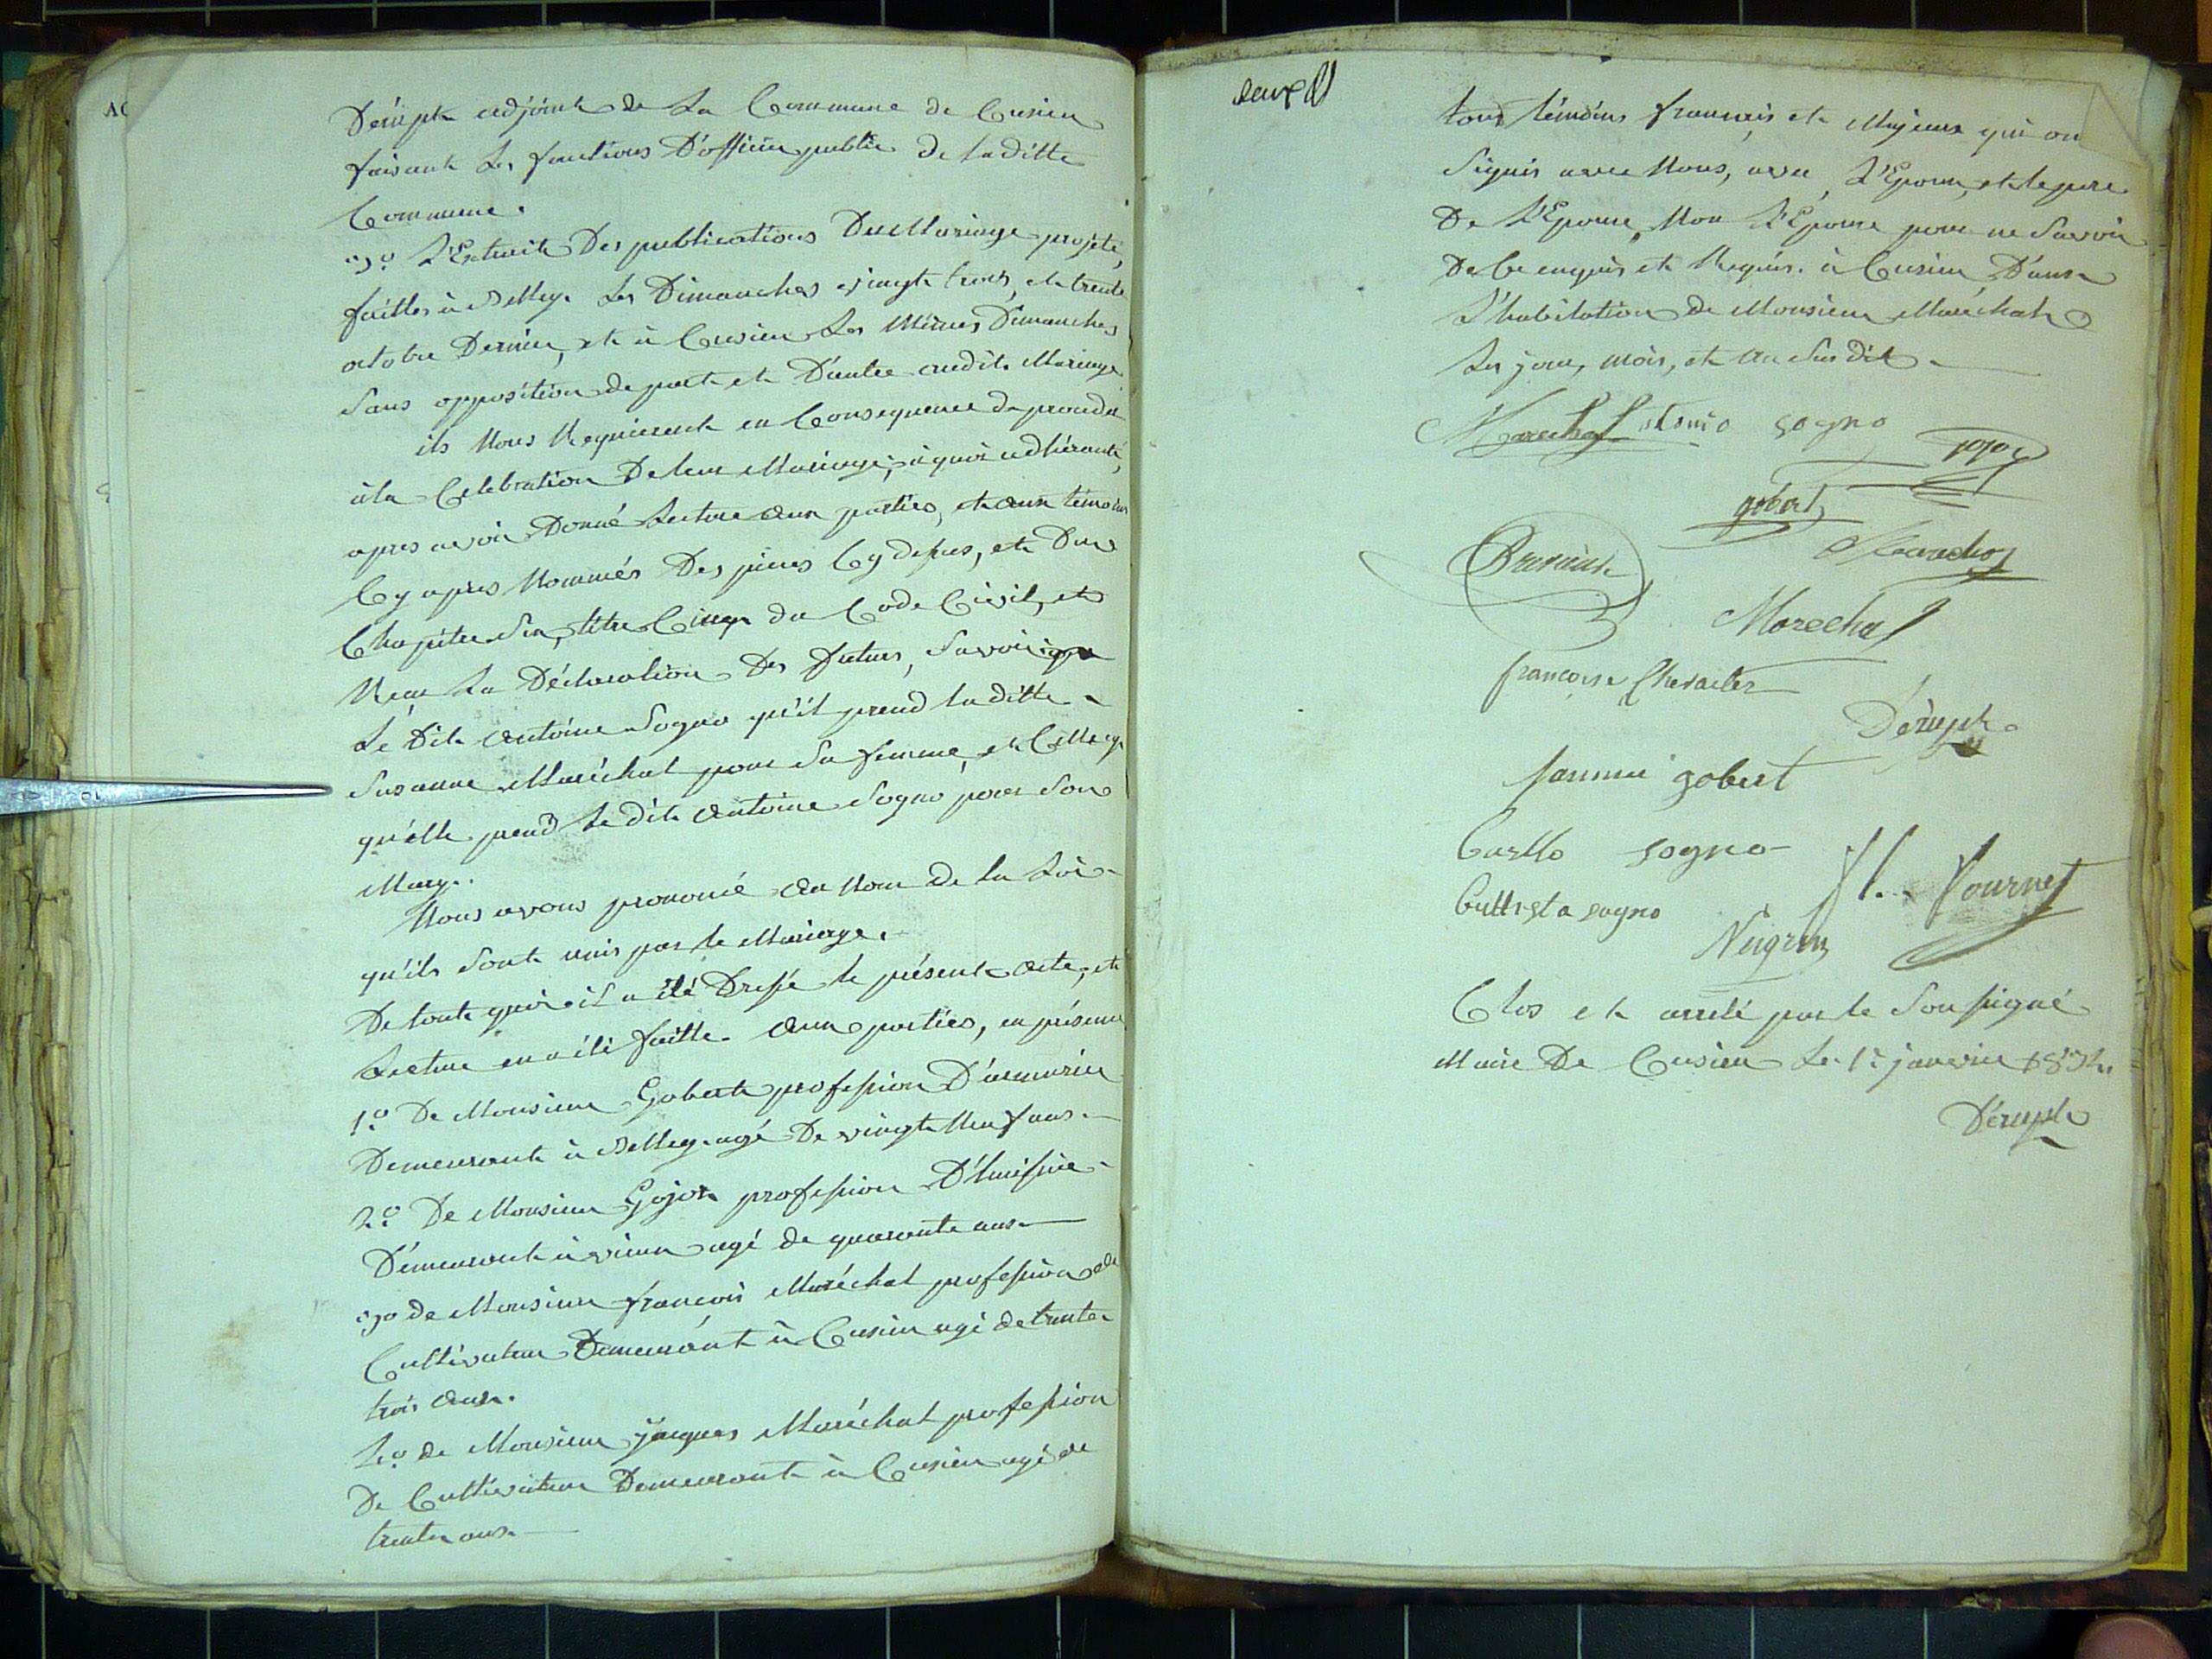 Dérupt adjoint de La Commune de Cusieu
faisant Les fonctions D'officier public de laditte
Commune.
3º L'Extrait Des publications Du Mariage projeté,
faittes à Belley Les Dimanches vingt trois, et trente
octobre Dernier, et à Cusieu Les Mêmes Dimanches
Sans opposition de part et D'autre audit Mariage.
ils Nous Requierent en Consequence de proceder
à la Celebration De leur Mariage, à quoi adhérant,
apres avoir Donné Lecture aux parties, et aux témoins
Cy apres Nommés Des pieces Cy dessus, et Du
Chapitre Six, titre Cinq du Code Civil, et
Reçu La Déclaration Des futurs, Savoir
Le Dit Antoine Sogno qu'il prend laditte
Susanne Maréchal pour Sa femme, et Celle cy
qu'elle prend Le dit Antoine Sogno pour Son
Mary.
Nous avons prononcé au Nom de la Loi
qu'ils Sont unis par le Mariage.
De tout quoi il a été Dressé le présent acte, et
Lecture en a été faitte aux parties, en présence
1º De Monsieur Gobert profession D'armurier
Demeurant à Belley agé De vingt Neuf ans.
2º De Monsieur Gojon profession D'huissier
Démeurant à vieu agé de quarante ans
3º de Monsieur françois Maréchal profession de
Cultivateur Demeurant à Cusieu agé de trente
trois ans.
4º de Monsieur Jacques Maréchal profession
De Cultivateur Demeurant à Cusieu agé de
trente ans
tous témoins français et Majeurs qui on
Signés avec Nous, avec L'Epoux, et le pere
De L'Epouse, Non L'Epouse pour ne Savoir
De Ce enquis et Requis. à Cusieu Dans
L'habitation de Monsieur Maréchal
Les jour, mois, et an Sus dit
Marechal Antonio Sogno
gojon
gobert
Marechal
Marechal
françoise Chevalier
Dérupt
gobert
Carllo Sogno
Fournet
Battista Sogno
Clos et arrêté par le Soussigné
Maire De Cusieu Le 1er janvier 1832
Dérupt